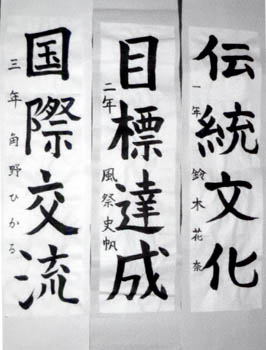 伝統文化
一年 鈴木花奈
目標達成
二年 風祭史帆
国際交流
三年 角野ひかる